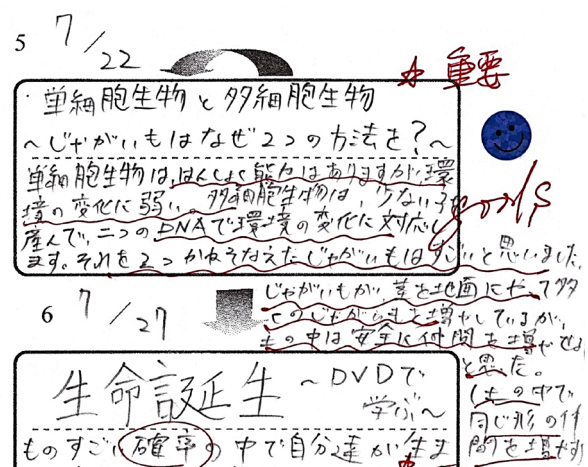 5 7/22
☆重要
単細胞生物と多細胞生物
～じゃがいもはなぜ2つの方法を?～
単細胞生物は,はんしょく能力はありますがい環
境の変化に弱い。多細胞生物は、少ない子を
産んで、二つのDNAで環境の変化に対応し
ます。それを2つかねそなえたじゃがいもはすごいと思いました。
じゃがいもが、茎を地面にやって多
くのじゃがいもを増やしているが、
もの中は安全に仲間を増やせる
と思った。
6 7/27
生命誕生 ～DVDで
学ぶ～
ものすごい確率の中で自分達が生ま
土の中で
同じ形の仲
間を増やす